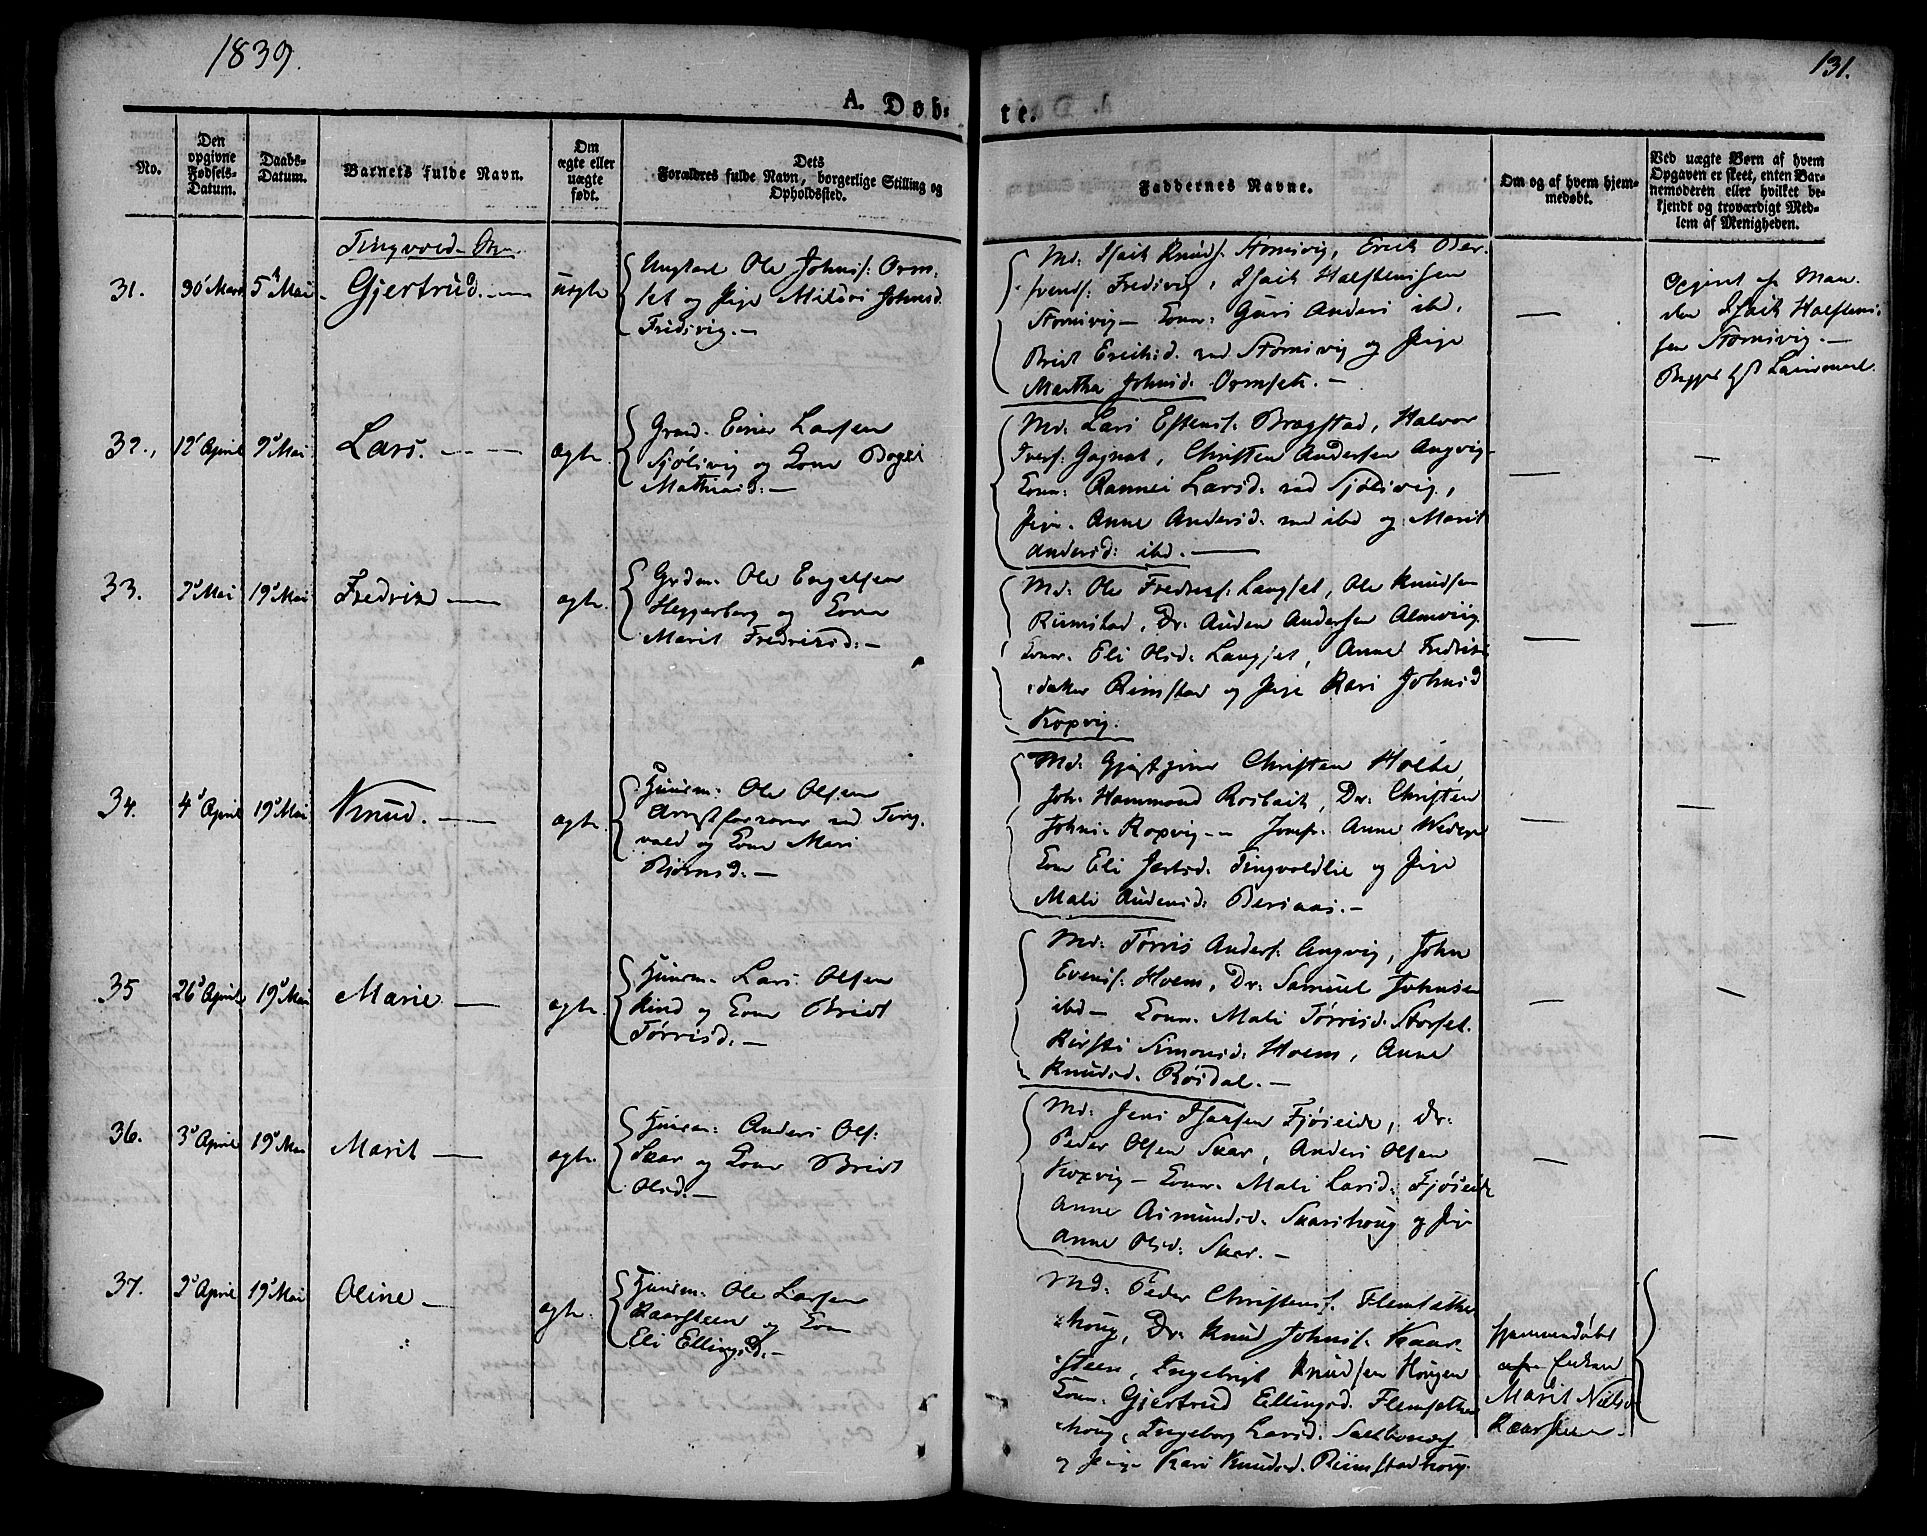 1839.
131.
A. Døb-
te.
No.
Den
opgivne
Fødsels-
Datum.
Daabs-
Datum.
Barnets fulde Navn.
Om
ægte eller
uægte
født.
Dets
Forældres fulde Navn, borgerlige Stilling og
Opholdssted.
Faddernes Navne.
Om og af hvem hjem-
medøbt.
Ved uægte Børn af hvem
Opgaven er skeet, enten Bar-
nemoderen eller hvilket be-
kjendt og troværdigt Med-
lem af Menigheden.
31.
30' Marts
5' Mai
Gjertrud.
uægte
Ungkarl Ole Johnss: Orm-
set og Pige Johnsd.
Fredsvig.-
Md. Isaik Knuds. Stornsvig, Erich
Fredsvig, Isaik Halstensen
Stornsvig - Konr. Guri Anders ibd,
Brit Erichsd. ved Stornsvig og Pige
Martha Johnsd. Ormset. -
Opgivet af Man-
den Isaik Halstens-
sen Stornsvig. -
32.,
12' April
9' Mai
Lars.
ægte
Grmd. Einer Larsen
Sjølsvig og Kone
Mathiasd: -
Md. Lars Estens: Bragstad, Halvor
Ivers: Gagnat, Christen Andersen Angvig
Konr: Rannei Larsd. ved Sjølsvig,
Pige. Anne Andersd. ved ibd og Marit
Andersd: ibd. -
33.
19' Mai
Fredrik
ægte
Grdm. Ole Engelsen
Heggerberg og Kone
Marit Fredriksd: -
Md. Ole Fredriks: Langset, Ole Knudsen
Rimstad, Dr. Auden Andersen Almvig
Konr. Eli Olsd. Langset, Anne Fredriks-
datter Rimstad og Pige Kari Johnsd
Kopvig.
34.
4' April
19' Mai
Knud.
ægte
Huusm. Ole Olsen
Arrestforvarer ved Ting-
vold og Kone Mari
Bjørnsd. -
Md. Gjæstgiver Christen Holte,
Joh: Hammond Rosbach, Dr: Christen
Johns: Kopvig - Jomfr. Anne Wedege
Kone Eli Tingvoldlie og Pige
Mali Audensd:
35
26' April
19' Mai
Marie
ægte
Huusm. Lars Olsen
Rind og Kone Brit
Tørrisd. -
Md: Tørris Anders: Angvig, John
Evens: Hoem, Dr: Samuel Johnsen
ibd - Konr. Mali Tørrisd. Storset.
Kirsti Simonsd: Hoem, Anne
Knudsd. Røsdal. -
36.
3' April
19' Mai
Marit
ægte
Huusm: Anders Ols:
Skar og Kone Brit
Olsd. -
Md: Jens Fjøseide, Dr:
Peder Olsen Skar, Anders Olsen
Kopvig - Konr. Mali Larsd. Fjøseide
Anne Asmundsd. Skarshoug og Pige
Anne Olsd: Skar. -
37.
2' April
19' Mai
Oline
ægte
Huusm. Ole Larsen
Kaarsteen og Kone
Eli Ellingsd. -
Md. Peder Christens.
houg, Dr. Knud Johns: Kaar-
steen, Ingebrigt Knudsen Hougen
Konr. Gjertrud Ellingsd.
houg, Ingeborg Larsd.
og Pige Kari Knudsd. Rimstadhoug.
Hjemmedøbt
Marit Nielsd
Kaarsteen.